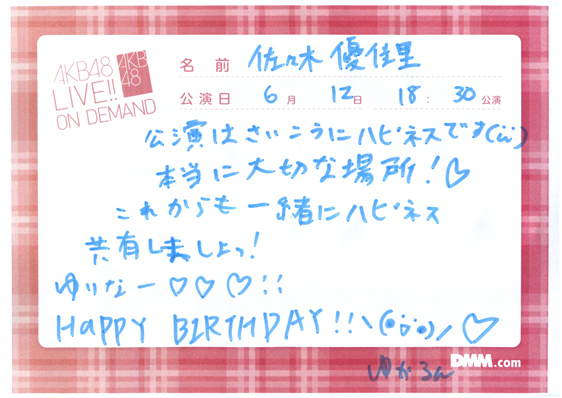 AKB48
LIVE!!
ON DEMAND
AKB
48
名前 佐々木 優佳里
公演日 6月 12日 18:30公演
公演はさいこうにハピネスです(ü)
本当に大切な場所!♡
これからも一緒にハピネス
共有しましょっ!
ゆりなー♡♡♡!!
HAPPY BIRTHDAY!!ヽ(•ü•)ノ♡
DMM.com
ゆかるん